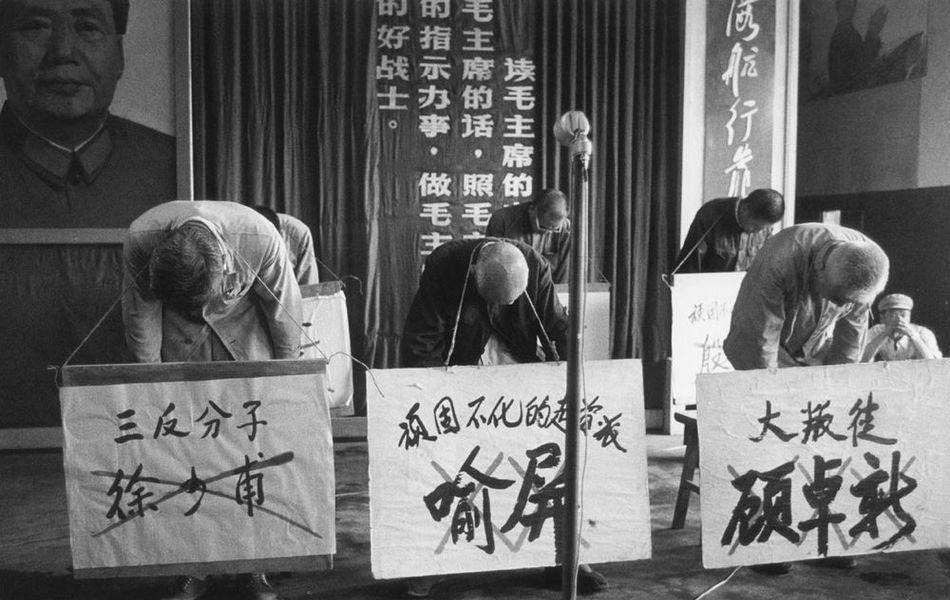 读毛主席的
毛主席的话，照毛主
的指示办事，做毛主
的好战士。
海航行靠
三反分子
徐少甫
顽固不化的走资派
喻屏
顽固不
殷
大叛徒
顾卓新